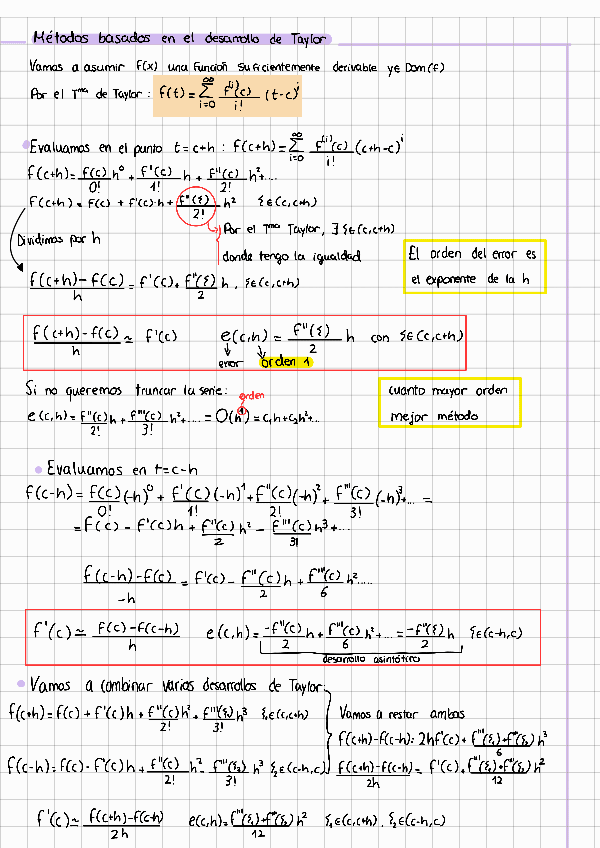 Métodos basados en el desarrollo de Taylor
Vamos a asumir f(x) una función suficientemente derivable y∈Dom(f)
Por el Tma de Taylor : f(t) = ∑_{i=0}^{∞} f^(i)(c)/i! (t-c)^i
Evaluamos en el punto t=c+h : f(c+h) = ∑_{i=0}^{∞} f^(i)(c)/i! (c+h-c)^i
f(c+h) = f(c)/0! h^0 + f'(c)/1! h + f''(c)/2! h^2 + ...
f(c+h) = f(c) + f'(c)·h + f''(ξ)/2! h^2 ξ∈(c,c+h)
Por el Tma Taylor, ∃ ξ∈(c,c+h)
donde tengo la igualdad
Dividimos por h
f(c+h)-f(c)/h = f'(c) + f''(ξ)/2 h , ξ∈(c,c+h)
El orden del error es
el exponente de la h
f(c+h)-f(c)/h ≃ f'(c) e(c,h) = f''(ξ)/2 h con ξ∈(c,c+h)
error orden 1
Si no queremos truncar la serie:
orden
e(c,h) = f''(c)/2! h + f'''(c)/3! h^2 + .... = O(h^1) = c₁h+c₂h^2+...
cuanto mayor orden
mejor método
Evaluamos en t=c-h
f(c-h) = f(c)/0! (-h)^0 + f'(c)/1! (-h)^1 + f''(c)/2! (-h)^2 + f'''(c)/3! (-h)^3 +... =
= f(c) - f'(c)h + f''(c)/2 h^2 - f'''(c)/3! h^3 + ...
f(c-h)-f(c)/-h = f'(c) - f''(c)/2 h + f'''(c)/6 h^2 ....
f'(c) ≃ f(c)-f(c-h)/h e(c,h) = -f''(c)/2 h + f'''(c)/6 h^2 + ... = -f''(ξ)/2 h ξ∈(c-h,c)
desarrollo asintótico
Vamos a combinar varios desarrollos de Taylor:
f(c+h) = f(c) + f'(c)h + f''(c)/2! h^2 + f'''(ξ₁)/3! h^3 ξ₁∈(c,c+h)
f(c-h) = f(c) - f'(c)h + f''(c)/2! h^2 - f'''(ξ₂)/3! h^3 ξ₂∈(c-h,c)
Vamos a restar ambas
f(c+h)-f(c-h) = 2hf'(c) + f'''(ξ₁)+f'''(ξ₂)/6 h^3
f(c+h)-f(c-h)/2h = f'(c) + f'''(ξ₁)+f'''(ξ₂)/12 h^2
f'(c) ≃ f(c+h)-f(c-h)/2h e(c,h) = f'''(ξ₁)+f'''(ξ₂)/12 h^2 ξ₁∈(c,c+h) , ξ₂∈(c-h,c)